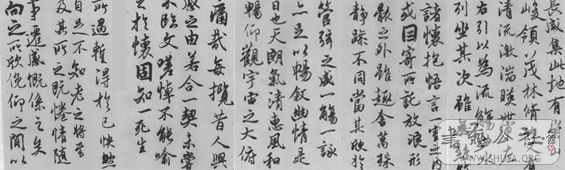 長咸集此地有崇山
峻領茂林脩竹又有
清流激湍暎帶左
右引以為流觴
列坐其次雖
諸懷抱悟言一室之内
或因寄所託放浪形
骸之外雖趣舍萬殊
靜躁不同當其欣於
管弦之盛一觴一詠
上足以暢敘幽情是
日也天朗氣清惠風和
暢仰觀宇宙之大俯
痛哉每攬昔人興
感之由若合一契未嘗
不臨文嗟悼不能喻
之於懷固知一死生
所遇輒得於己快然
自足不知老之將至
及其所之既惓情隨
事遷感慨係之矣
向之所欣俛仰之閒以
WWW.SHUFA.ORG